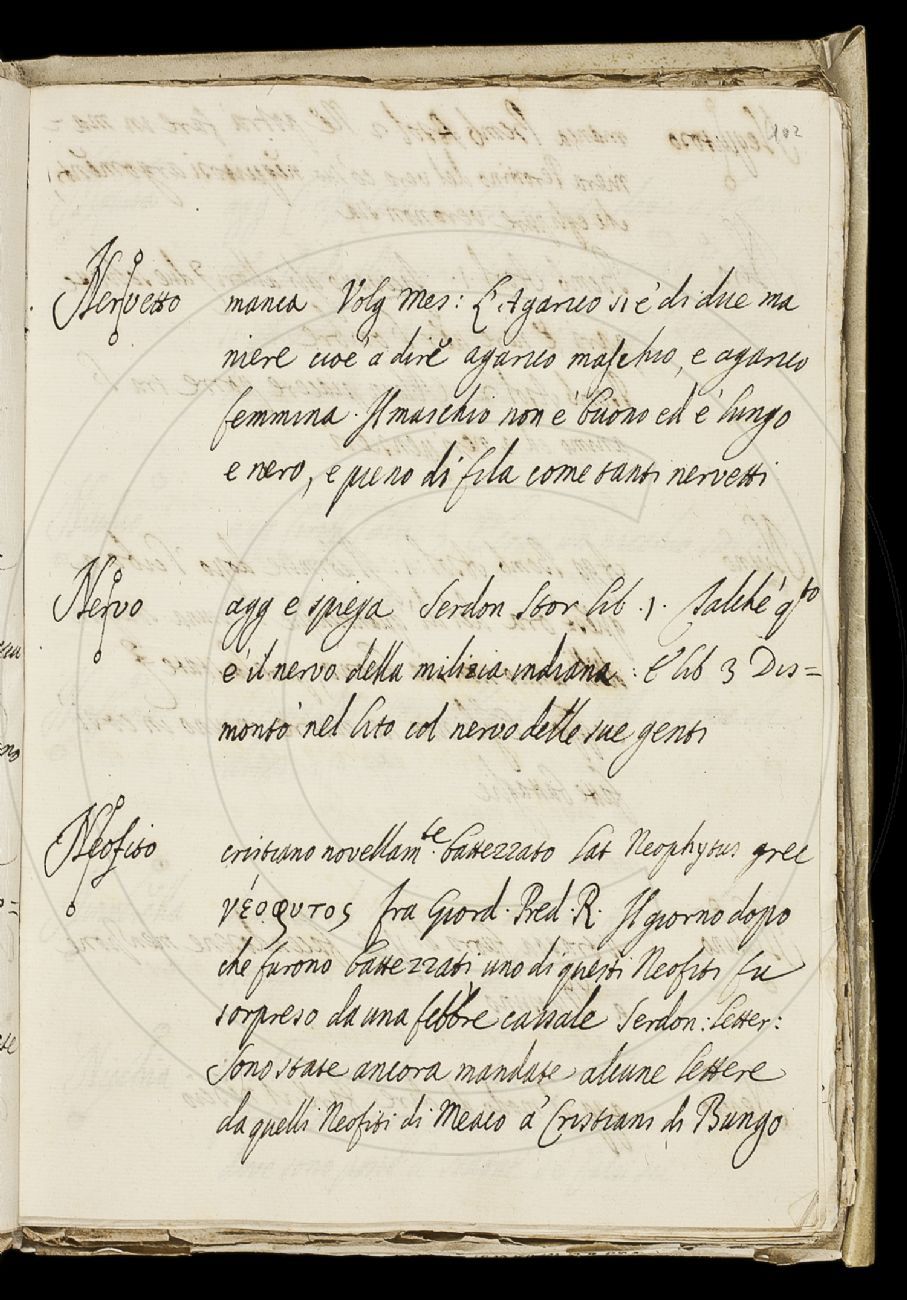 102
Nervetto manca Volg Mes: L'Agarico si è di due ma
niere cioè à dire agarico maschio, e agarico
femmina. Il maschio non è buono ed è lungo
e nero, e pieno di fila come tanti nervetti
Nervo agg e spiega Serdon Stor lib. 1. Talche q.to
è il nervo della milizia indiana. E lib 3 Dis=
montò nel lito col nervo delle sue genti
Neofito cristiano novellam.te battezzato lat Neophytus grec
νέοφυτος fra Giord. Pred. R. Il giorno dopo
che furono battezzati uno di questi Neofiti fu
sorpreso da una febbre causale Serdon: letter:
Sono state ancora mandate alcune lettere
da quelli Neofiti di Meaco à Cristiani di Bungo